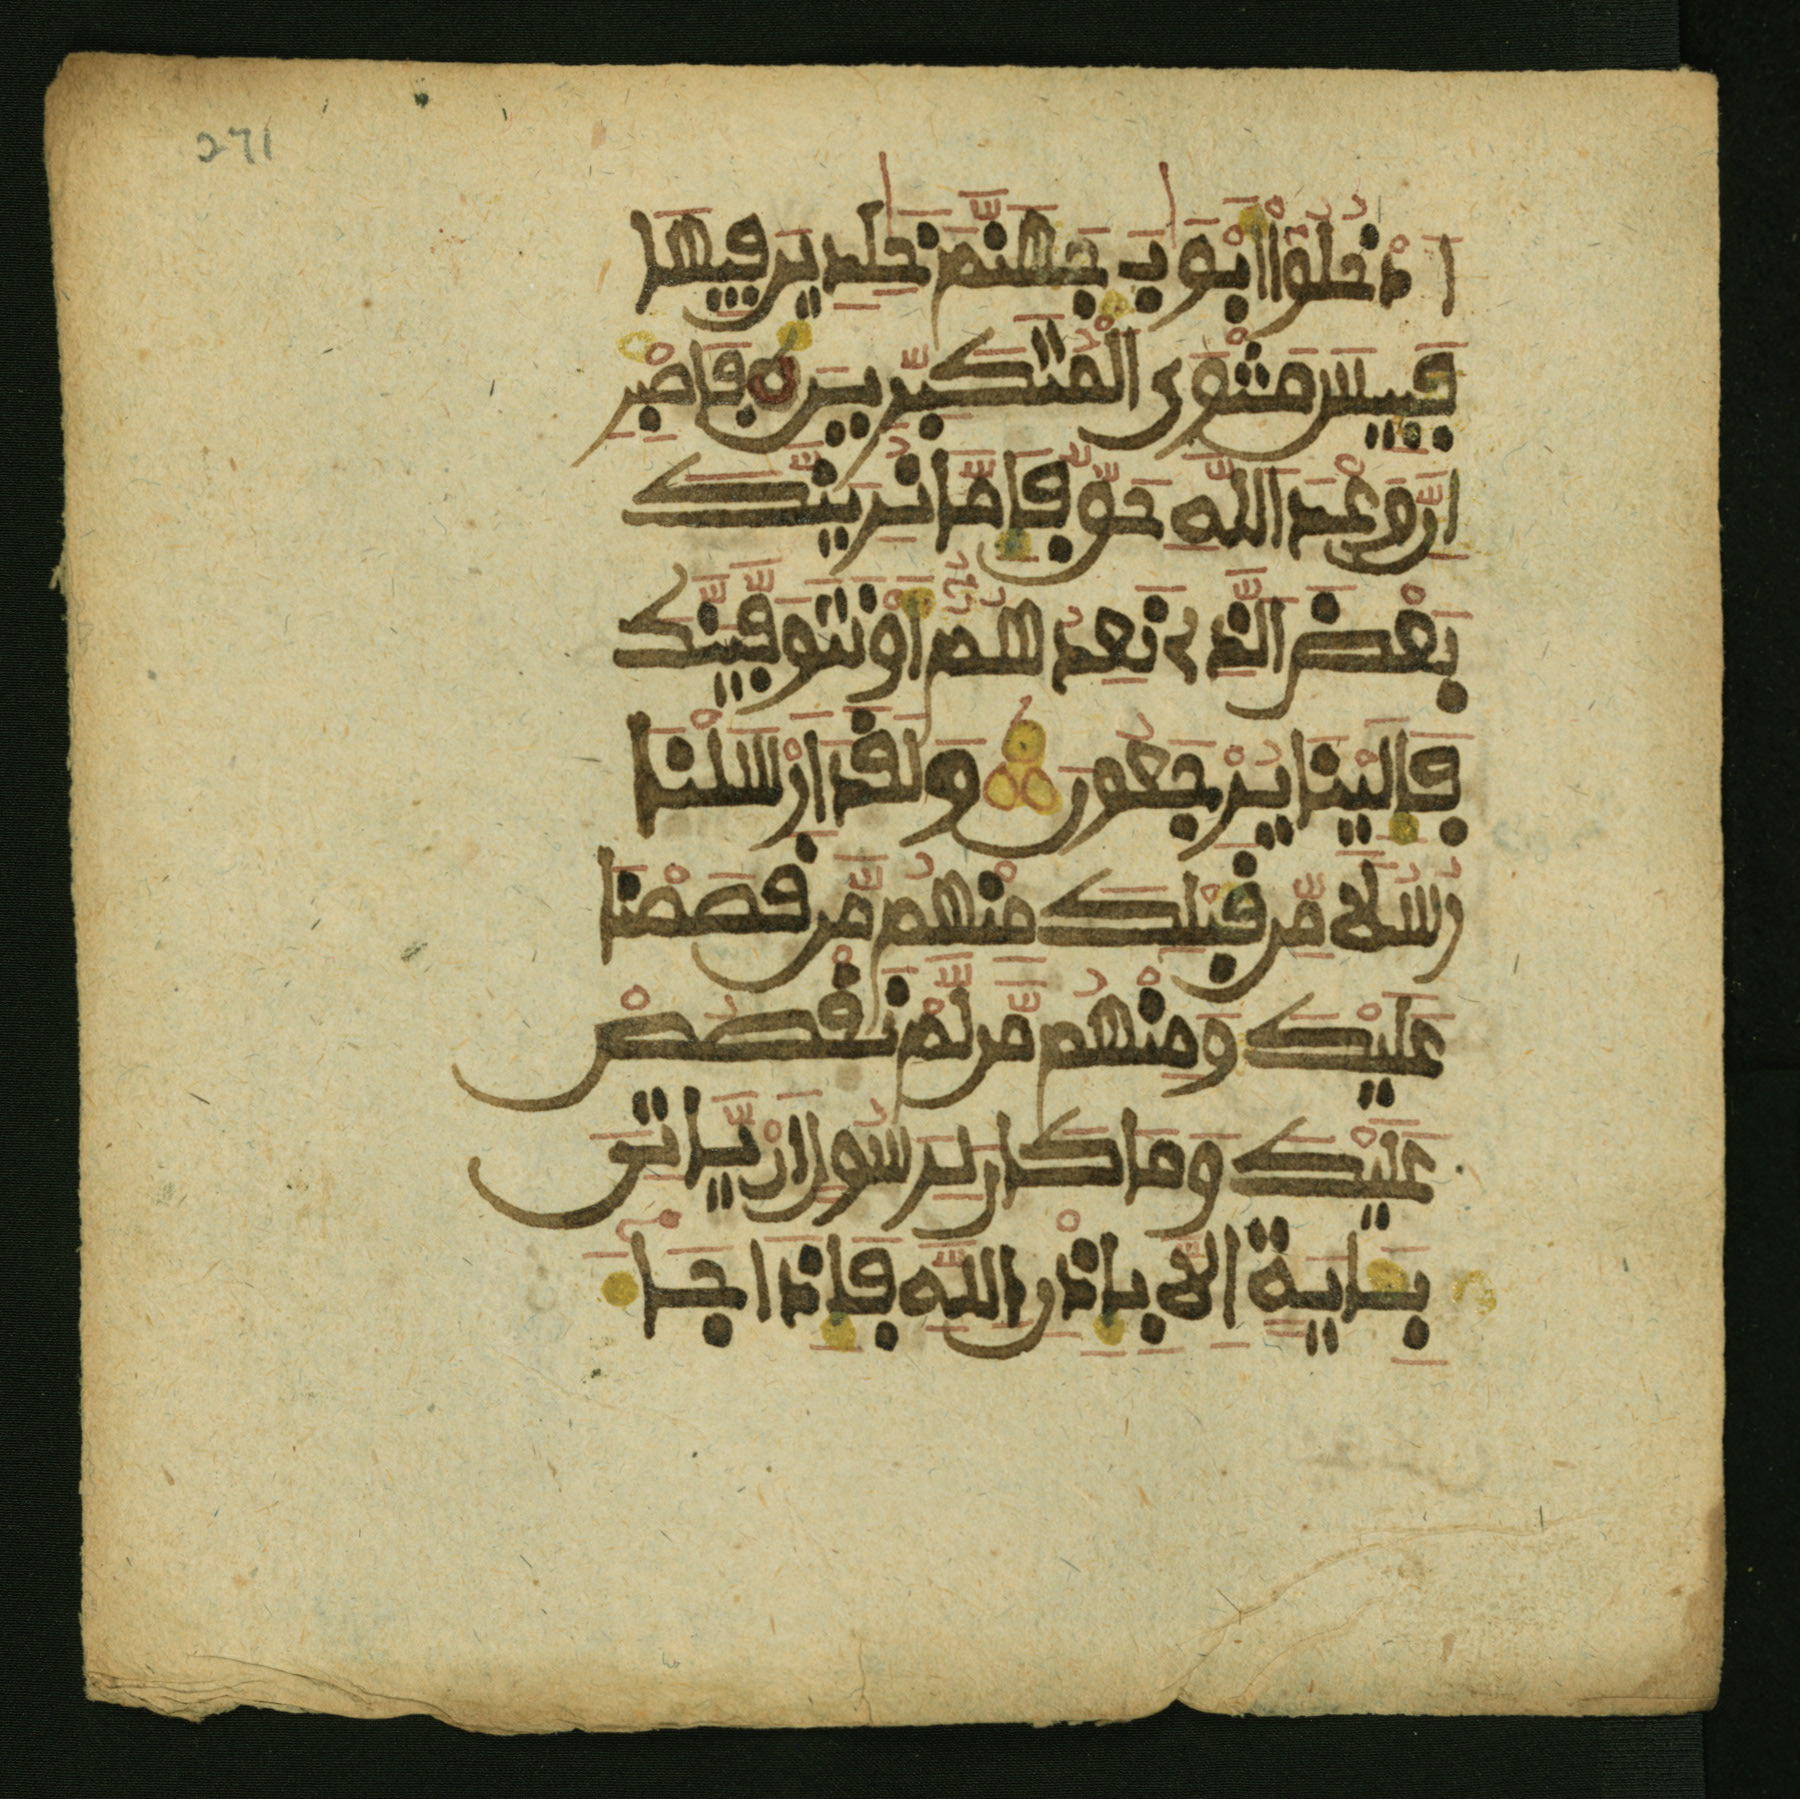 271
ا دْخُلُوٓاْ أَبْوَبَ جَهَنَّمَ خَلِدِينَ فِيهَا
فَبِيسَ مَثْوَى الْمُتَكَبِّرِينَ فَاصْبِرِ
انَّ وَعْدَ اللَّهِ حَقٌّ فَإِمَّا نُرِيَنَّكَ
بَعْضَ الَّذِے نَعِدُهُمُۥٓ أَوْ نَتَوَفَّيَنَّكَ
فَإِلَيْنَا يُرْجَعُونَ وَلَقَدَ ارْسَلْنَا
رُسُلًا مِّن قَبْلِكَ مِنْهُم مَّن قَصَصْنَا
عَلَيْكَ وَمِنْهُم مَّن لَّمْ نَقْصُصْ
عَلَيْكَ وَمَا كَانَ لِرَسُولٍ أَنْ يَّاتِيَ
بِـَٔايَةٍ اِلَّا بِإِذْنِ اللَّهِ فَإِذَا جَآ